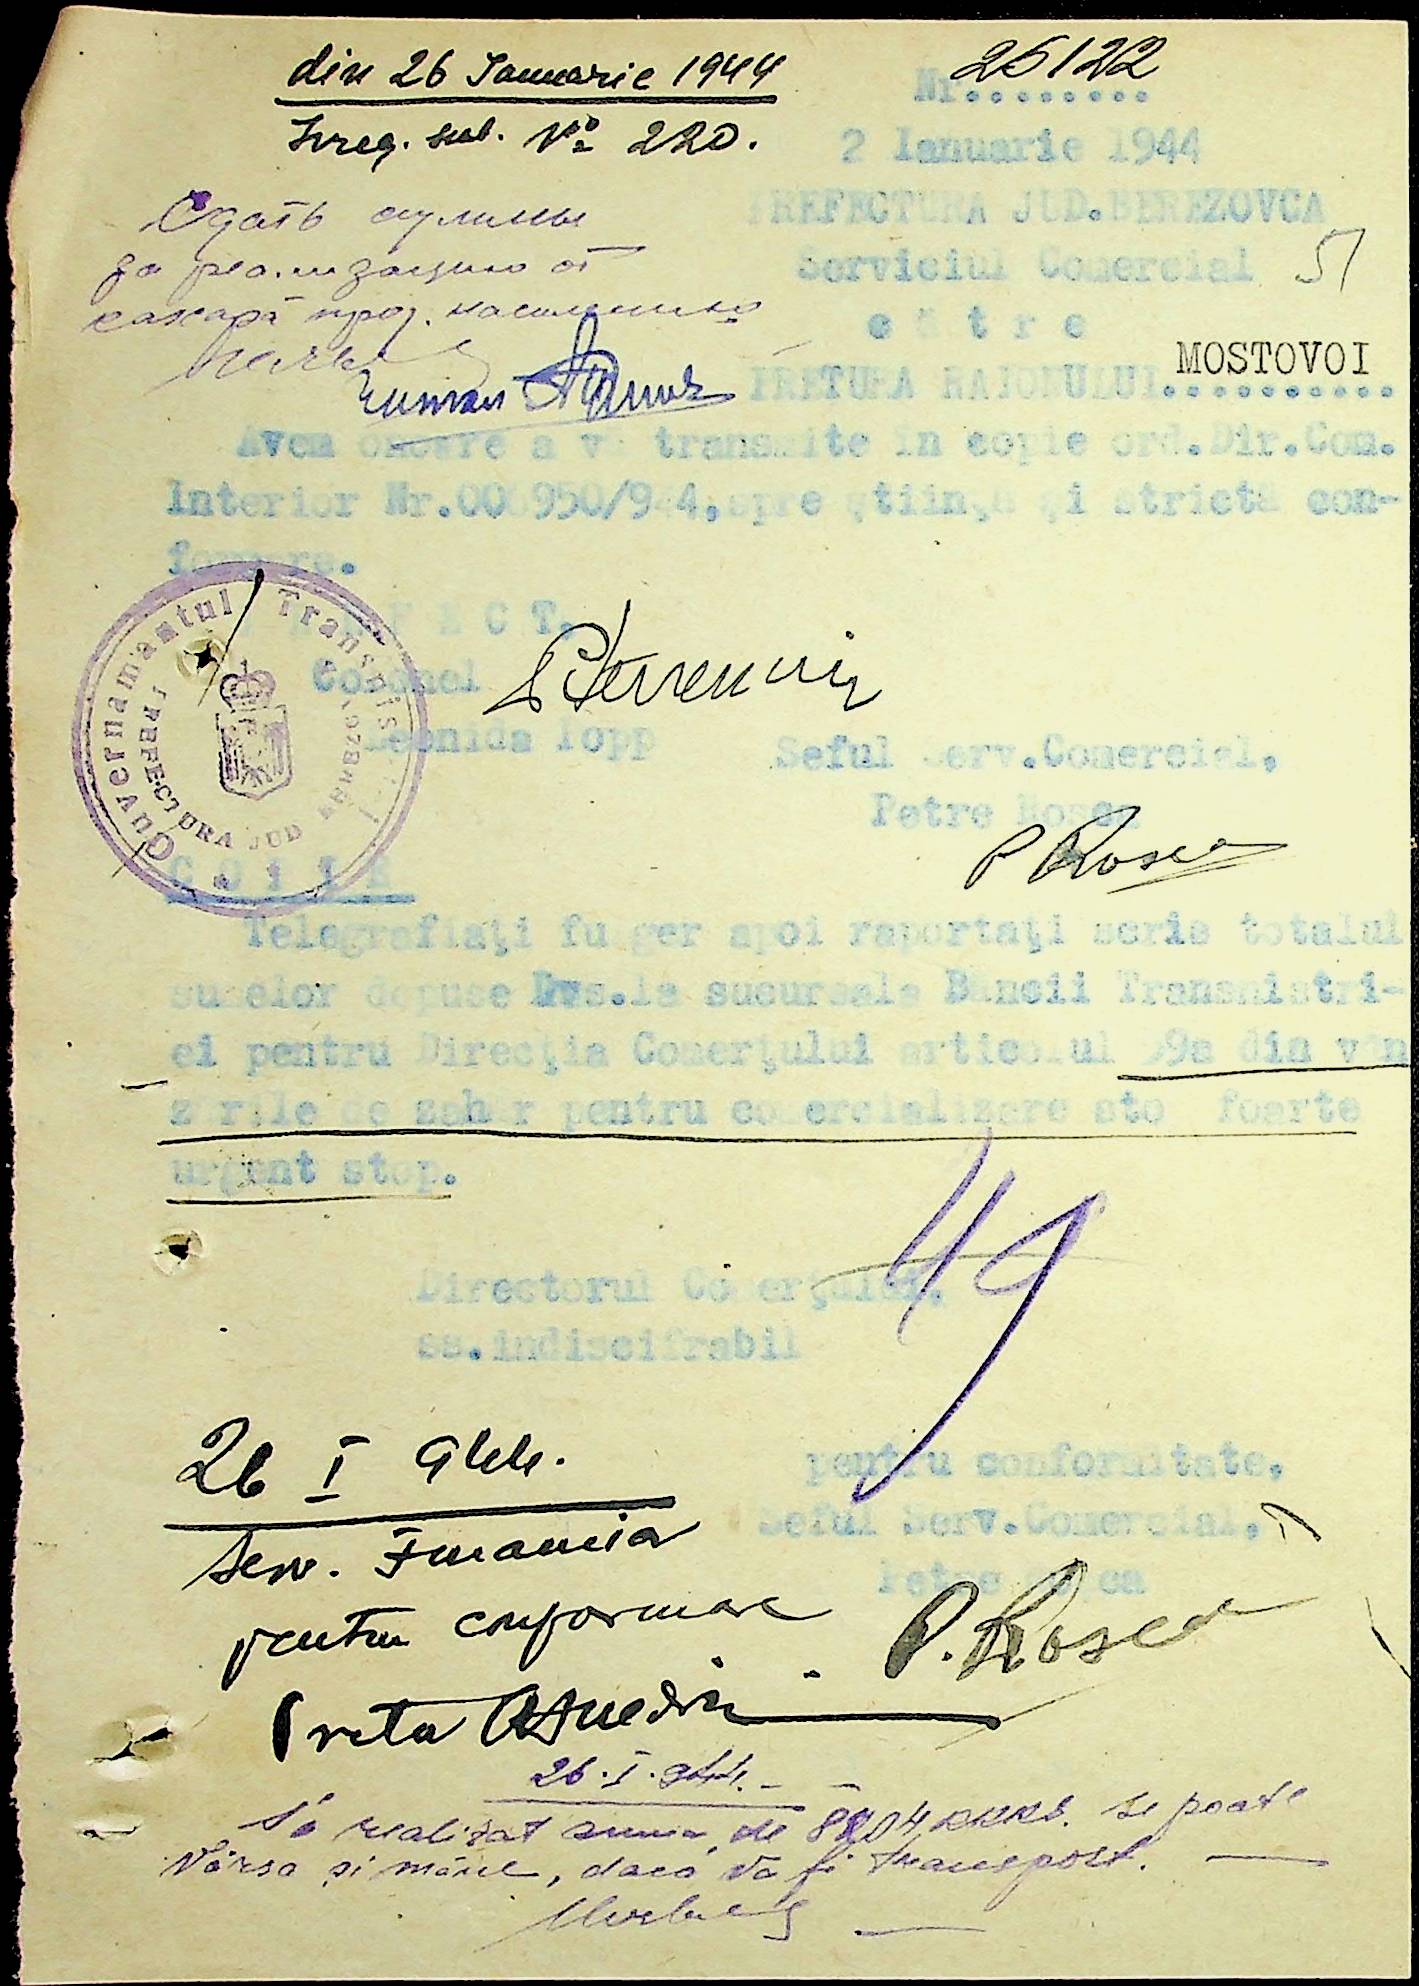 din 26 Ianuarie 1944
Inreg. sub. No 220.
25122
Nr.........
2 Ianuarie 1944
PREFECTURA JUD.BEREZOVCA
Serviciul Comercial
51
către
PRETURA RAIONULUI..........
MOSTOVOI
Сдать
за реализацию от
сахара прод. населению
Avem onoare a vă transmite în copie ord.Dir.Com.
Interior Nr.006950/944,spre ştiinţă şi strictă con-
formare.
PREFECT.
Colonel
Leonida Popp
Guvernamantul Transnistriei
PREFECTURA JUD
Seful Serv.Comercial,
Petre Rosca
P Rosca
COPIE
Telegrafiaţi fulger apoi raportaţi scris totalul
sumelor depuse Dvs.la sucursala Băncii Transnistri-
ei pentru Direcţia Comerţului articolul 99a din vân
zările de zahăr pentru comercializare sto foarte
urgent stop.
49
Directorul Comerţului,
ss.indiscifrabil
26 I 944.
Serv. Financiar
pentru conformare
pentru conformitate,
Seful Serv.Comercial,
Petre Rosca
P. Rosca
26.I.944.-
S'a realizat suma de 8804 RKKS. se poate
vărsa şi mâine, dacă va fi transport.